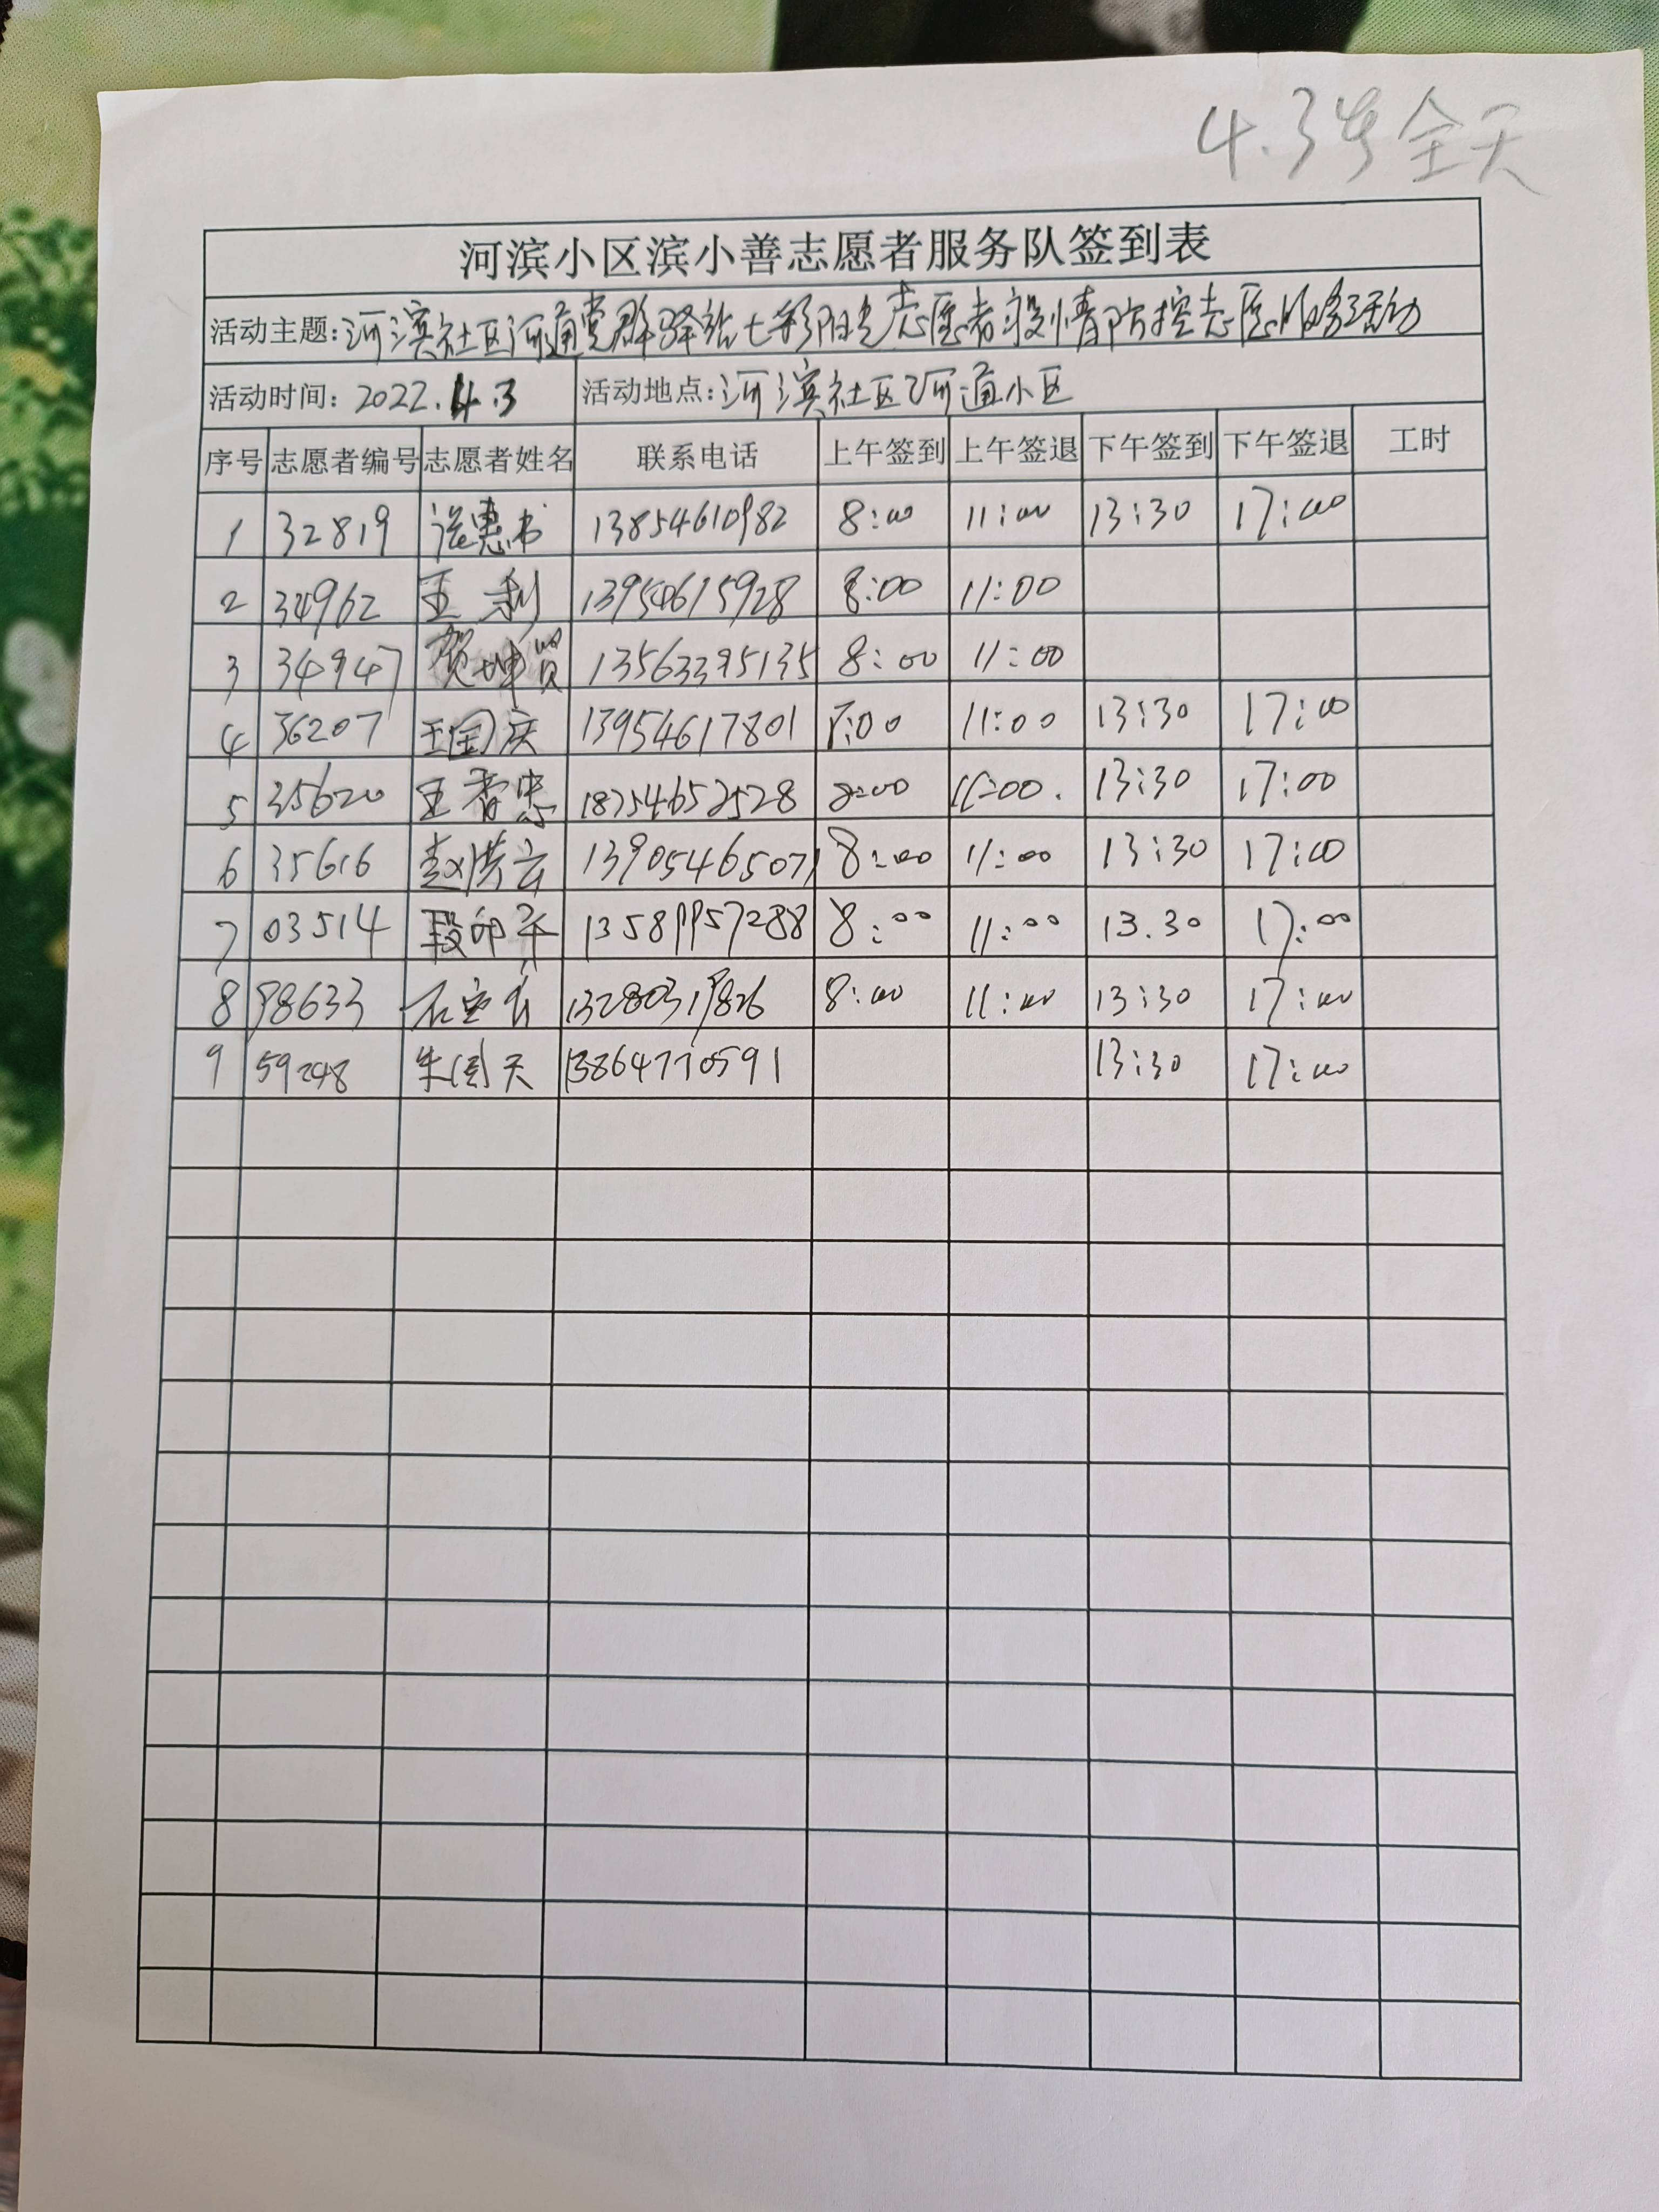 4.3号全天
河滨小区滨小善志愿者服务队签到表
活动主题:河滨社区河通党群驿站七彩阳光志愿者疫情防控志愿服务活动
活动时间: 2022.4.3 活动地点:河滨社区河通小区
序号 志愿者编号 志愿者姓名 联系电话 上午签到 上午签退 下午签到 下午签退 工时
1 32819 13854610982 8:00 11:00 13:30 17:00
2 34962 王利 13954615928 8:00 11:00
3 34947 贺坤贤 13563395135 8:00 11:00
4 36207 王国庆 13954617801 8:00 11:00 13:30 17:00
5 35620 王香忠 18754652528 8:00 11:00. 13:30 17:00
6 35616 赵洪云 13905465071 8:00 11:00 13:30 17:00
7 03514 段印平 13589957288 8:00 11:00 13.30 17:00
8 98633 石宝友 13280319826 8:00 11:00 13:30 17:00
9 59248 朱国天 13864770591 13:30 17:00